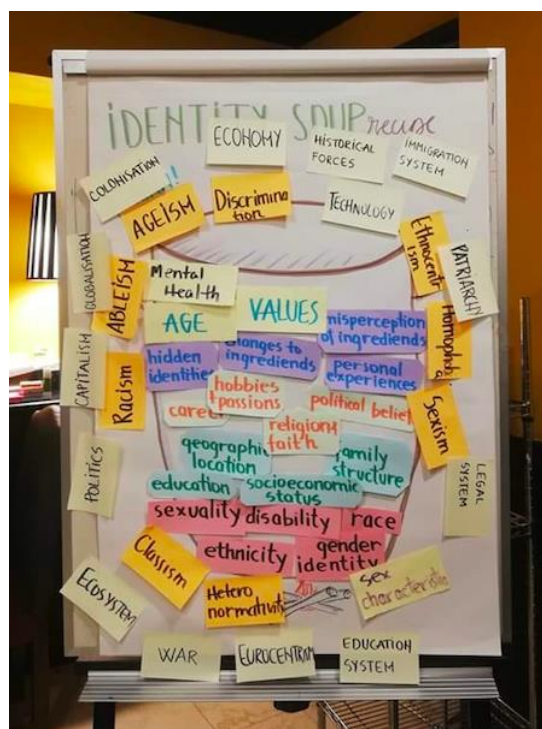 iDENTITY SOUP recipe
ECONOMY
HISTORICAL
FORCES
IMMIGRATION
SYSTEM
COLONISATION
AGEISM
Discrimina
tion
TECHNOLOGY
Ethnocentr
ism
PATRIARCHY
GLOBALISATION
ABLEISM
Mental
Health
AGE
VALUES
misperception
of ingredients
Homophobi
a
CAPITALISM
Racism
hidden
identities
changes to
ingredients
personal
experiences
hobbies
+passions
career
political belief
religion+
faith
Sexism
geographic
location
family
structure
POLITICS
education
socioeconomic
status
LEGAL
SYSTEM
sexuality
disability
race
ethnicity
gender
identity
Classism
Hetero
normativity
sex
characteristics
ECOSYSTEM
WAR
EUROCENTRISM
EDUCATION
SYSTEM